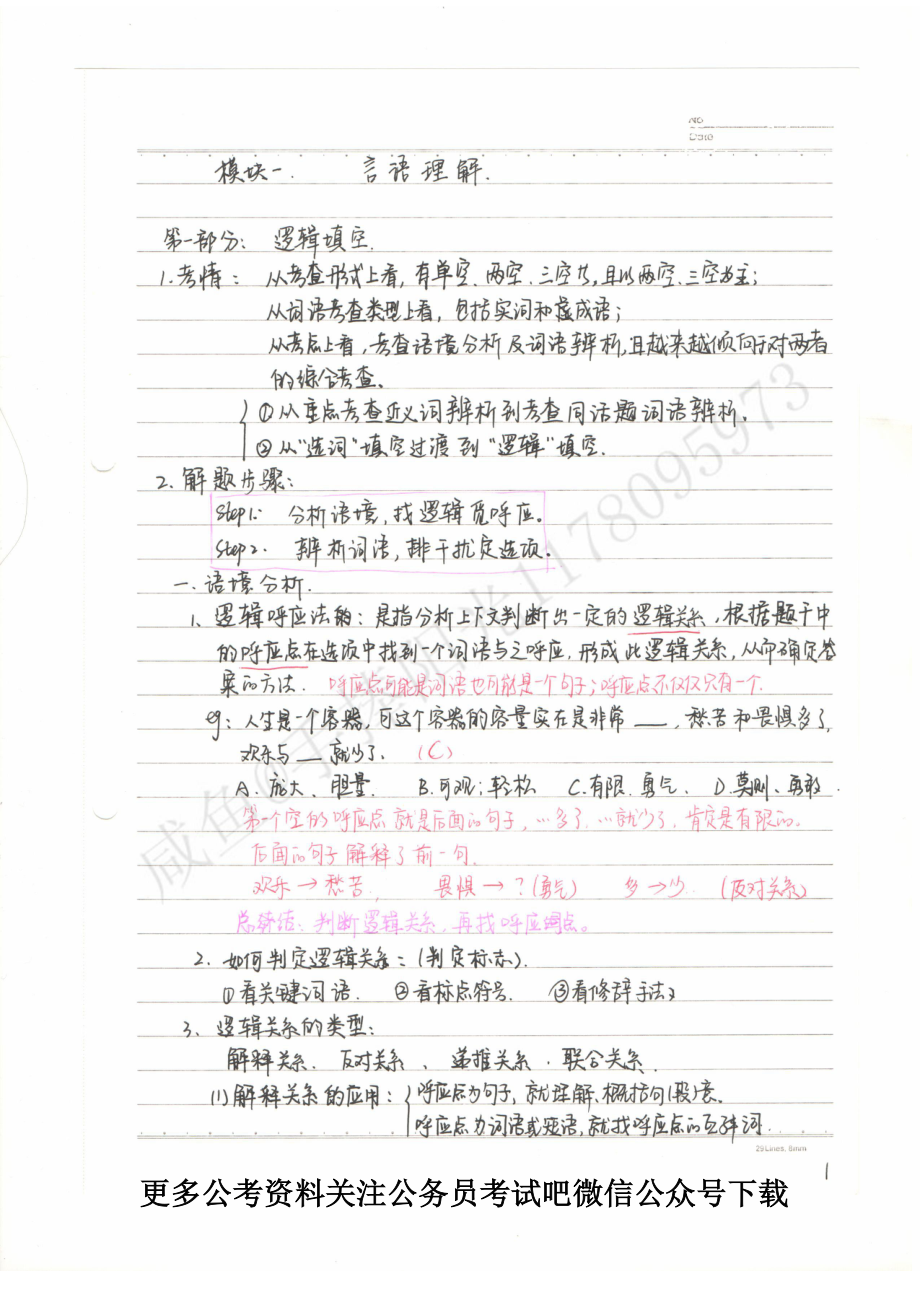 No
Date
模块一. 言语理解.
第一部分: 逻辑填空.
1.考情: 从考查形式上看, 有单空、两空、三空, 且以两空、三空为主;
从词语考查类型上看, 包括实词和成语;
从考点上看, 考查语境分析及词语辨析, 且越来越倾向于对两者
的综合考查。
①从重点考查近义词辨析到考查同话题词语辨析.
②从“选词”填空过渡到“逻辑”填空.
2.解题步骤:
Step1: 分析语境, 找逻辑觅呼应。
Step2. 辨析词语, 排干扰定选项。
一.语境分析.
1、逻辑呼应法的: 是指分析上下文判断出一定的逻辑关系, 根据题干中
的呼应点在选项中找到一个词语与之呼应, 形成此逻辑关系, 从而确定答
案的方法. 呼应点可能是词语也可能是一个句子; 呼应点不仅仅只有一个.
eg: 人生是一个容器, 可这个容器的容量实在是非常 ___ , 愁苦和畏惧多了,
欢乐与 __ 就少了. (C)
A. 庞大、胆量. B.可观; 轻松 C.有限. 勇气、 D.莫测、勇敢.
第一个空的呼应点就是后面的句子, …多了. …就少了, 肯定是有限的。
后面的句子解释了前一句.
欢乐→愁苦, 畏惧→?(勇气) 多→少. (反对关系)
总结: 判断逻辑关系, 再找呼应点。
2. 如何判定逻辑关系: (判定标志).
①看关键词语. ②看标点符号. ③看修辞手法
3、逻辑关系的类型:
解释关系. 反对关系、递推关系. 联合关系.
(1)解释关系的应用: 呼应点为句子, 就理解、概括句(段)意.
呼应点为词语或短语, 就找呼应点的互释词.
29Lines, 8mm
1
更多公考资料关注公务员考试吧微信公众号下载
咸鱼@手撑阳光1178095973